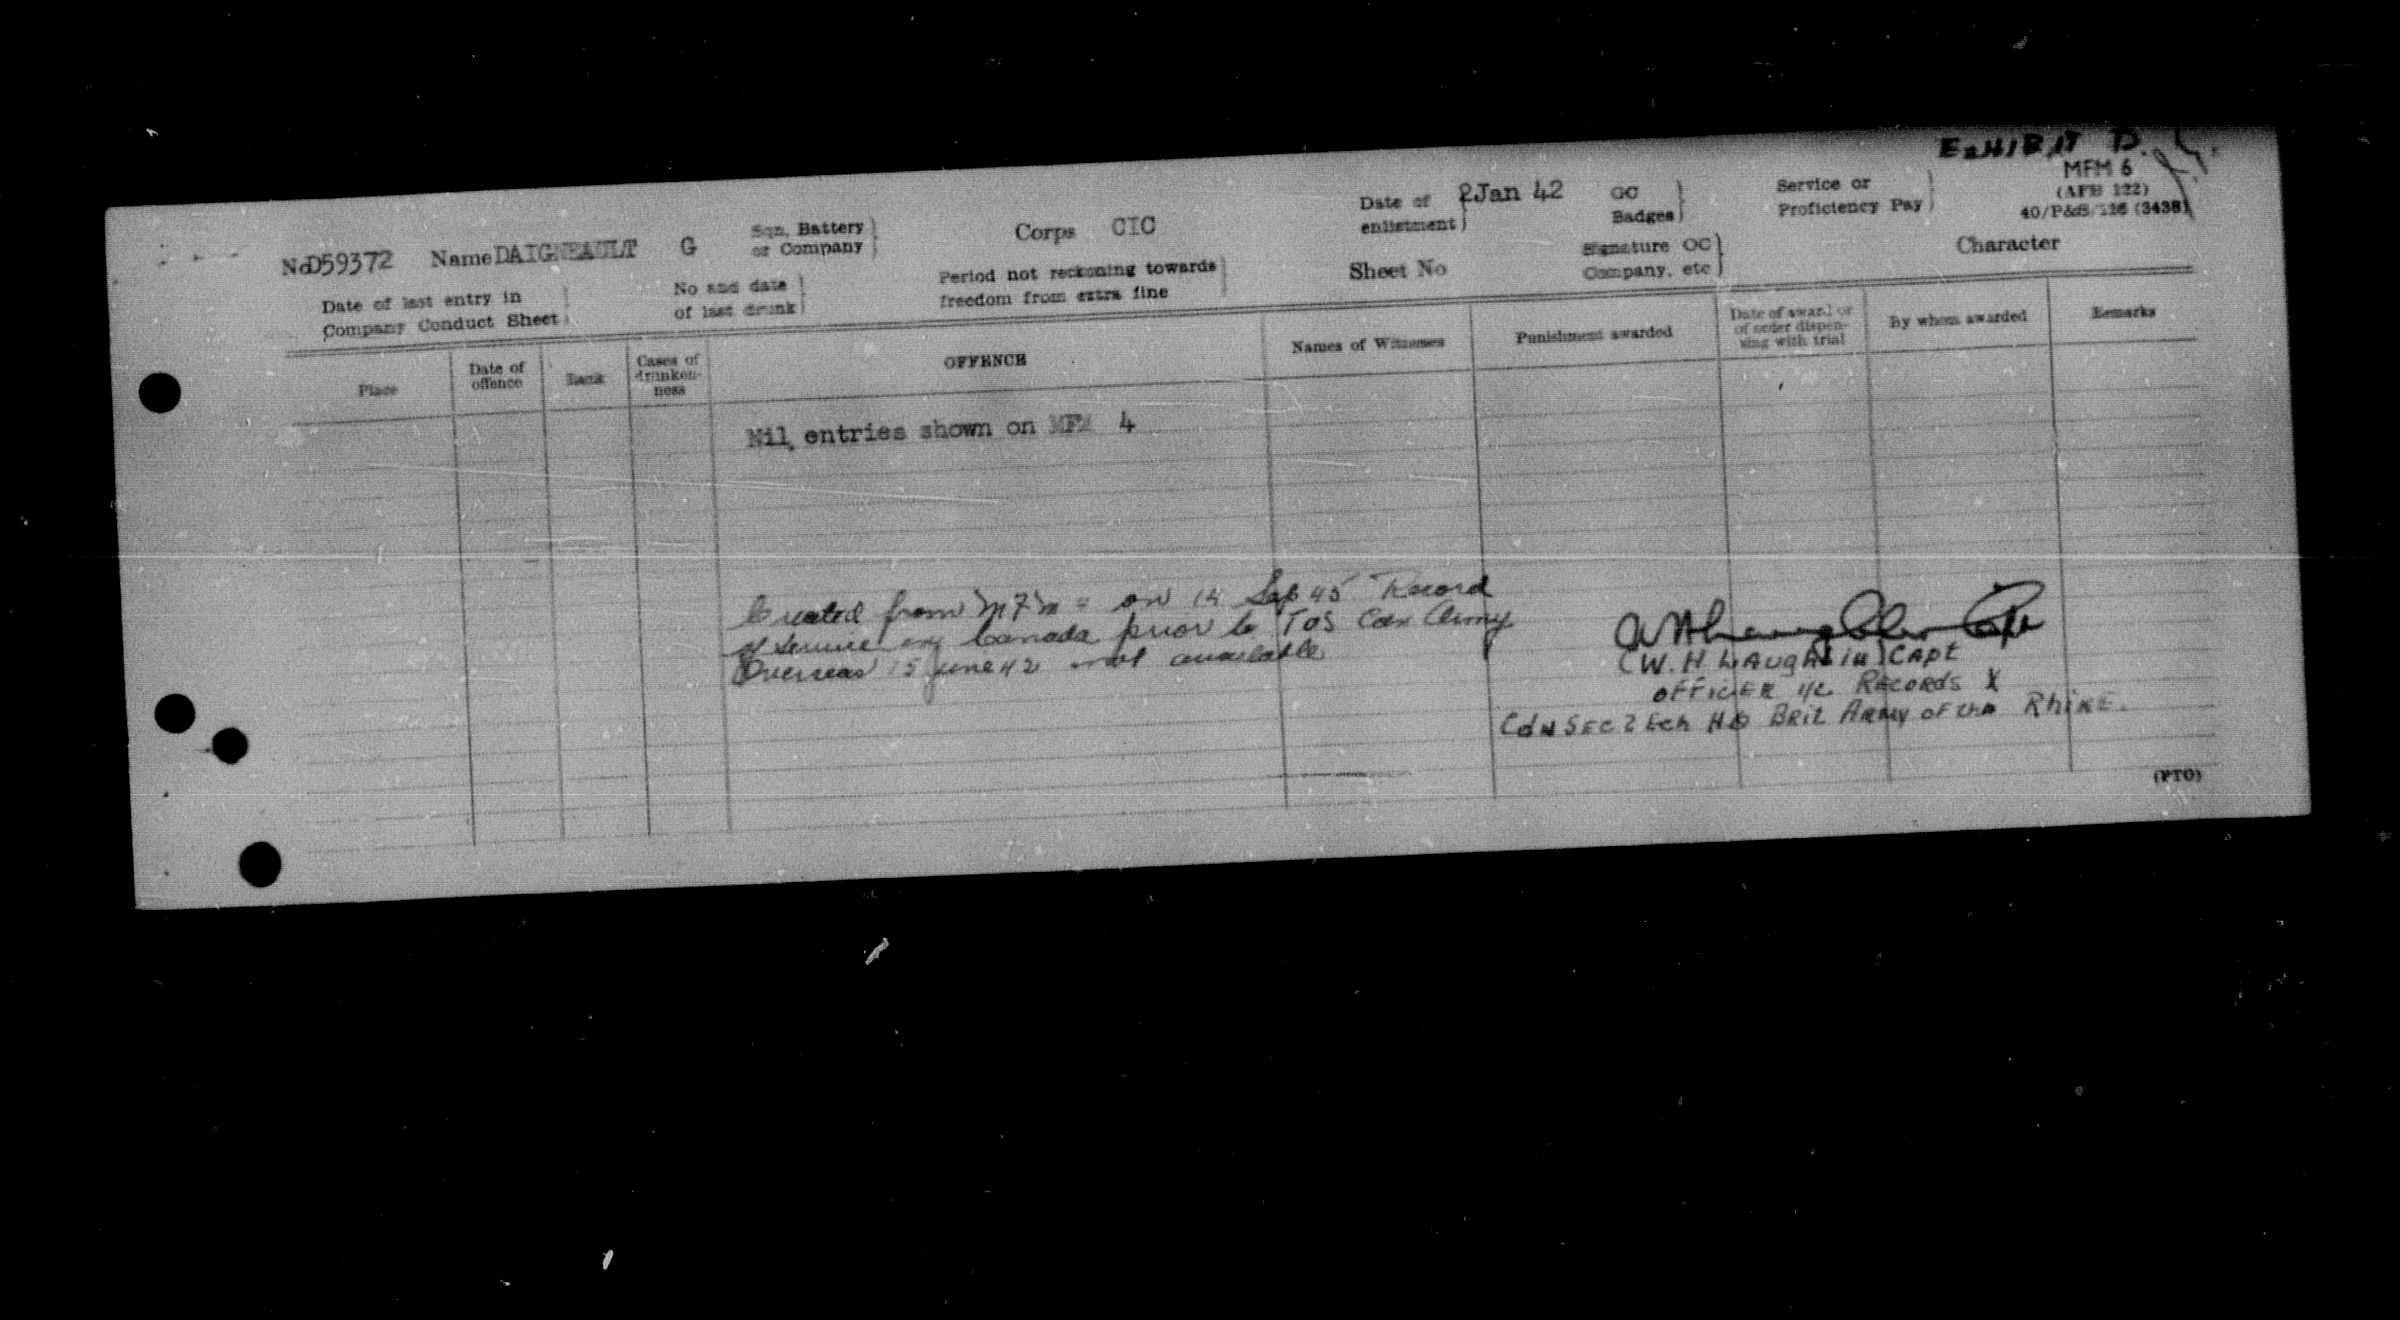 EXHIBIT B.
MFM 6
(AFB 122)
40/P&S/116 (3438)
NoD59372 Name DAIGNEAULT G Sqn, Battery or Company Corps CIC Date of enlistment 2Jan 42 GC Badges Service or Proficiency Pay
Date of last entry in Company Conduct Sheet No and date of last drunk Period not reckoning towards freedom from extra fine Sheet No Signature OC Company, etc Character
Place Date of offence Rank Cases of drunken-ness OFFENCE Names of Witnesses Punishment awarded Date of award or of order dispen-sing with trial By whom awarded Remarks
Nil entries shown on MFM 4
Created from MFM 4 on 14 Sep 45 Record
of service in Canada prior to TOS Cdn Army
Overseas 15 June 42 not available
(W. H Laughlin) Capt
OFFICER i/c RECORDS
Cdn Sec 2 Ech HQ Brit Army of the Rhine.
(PTO)